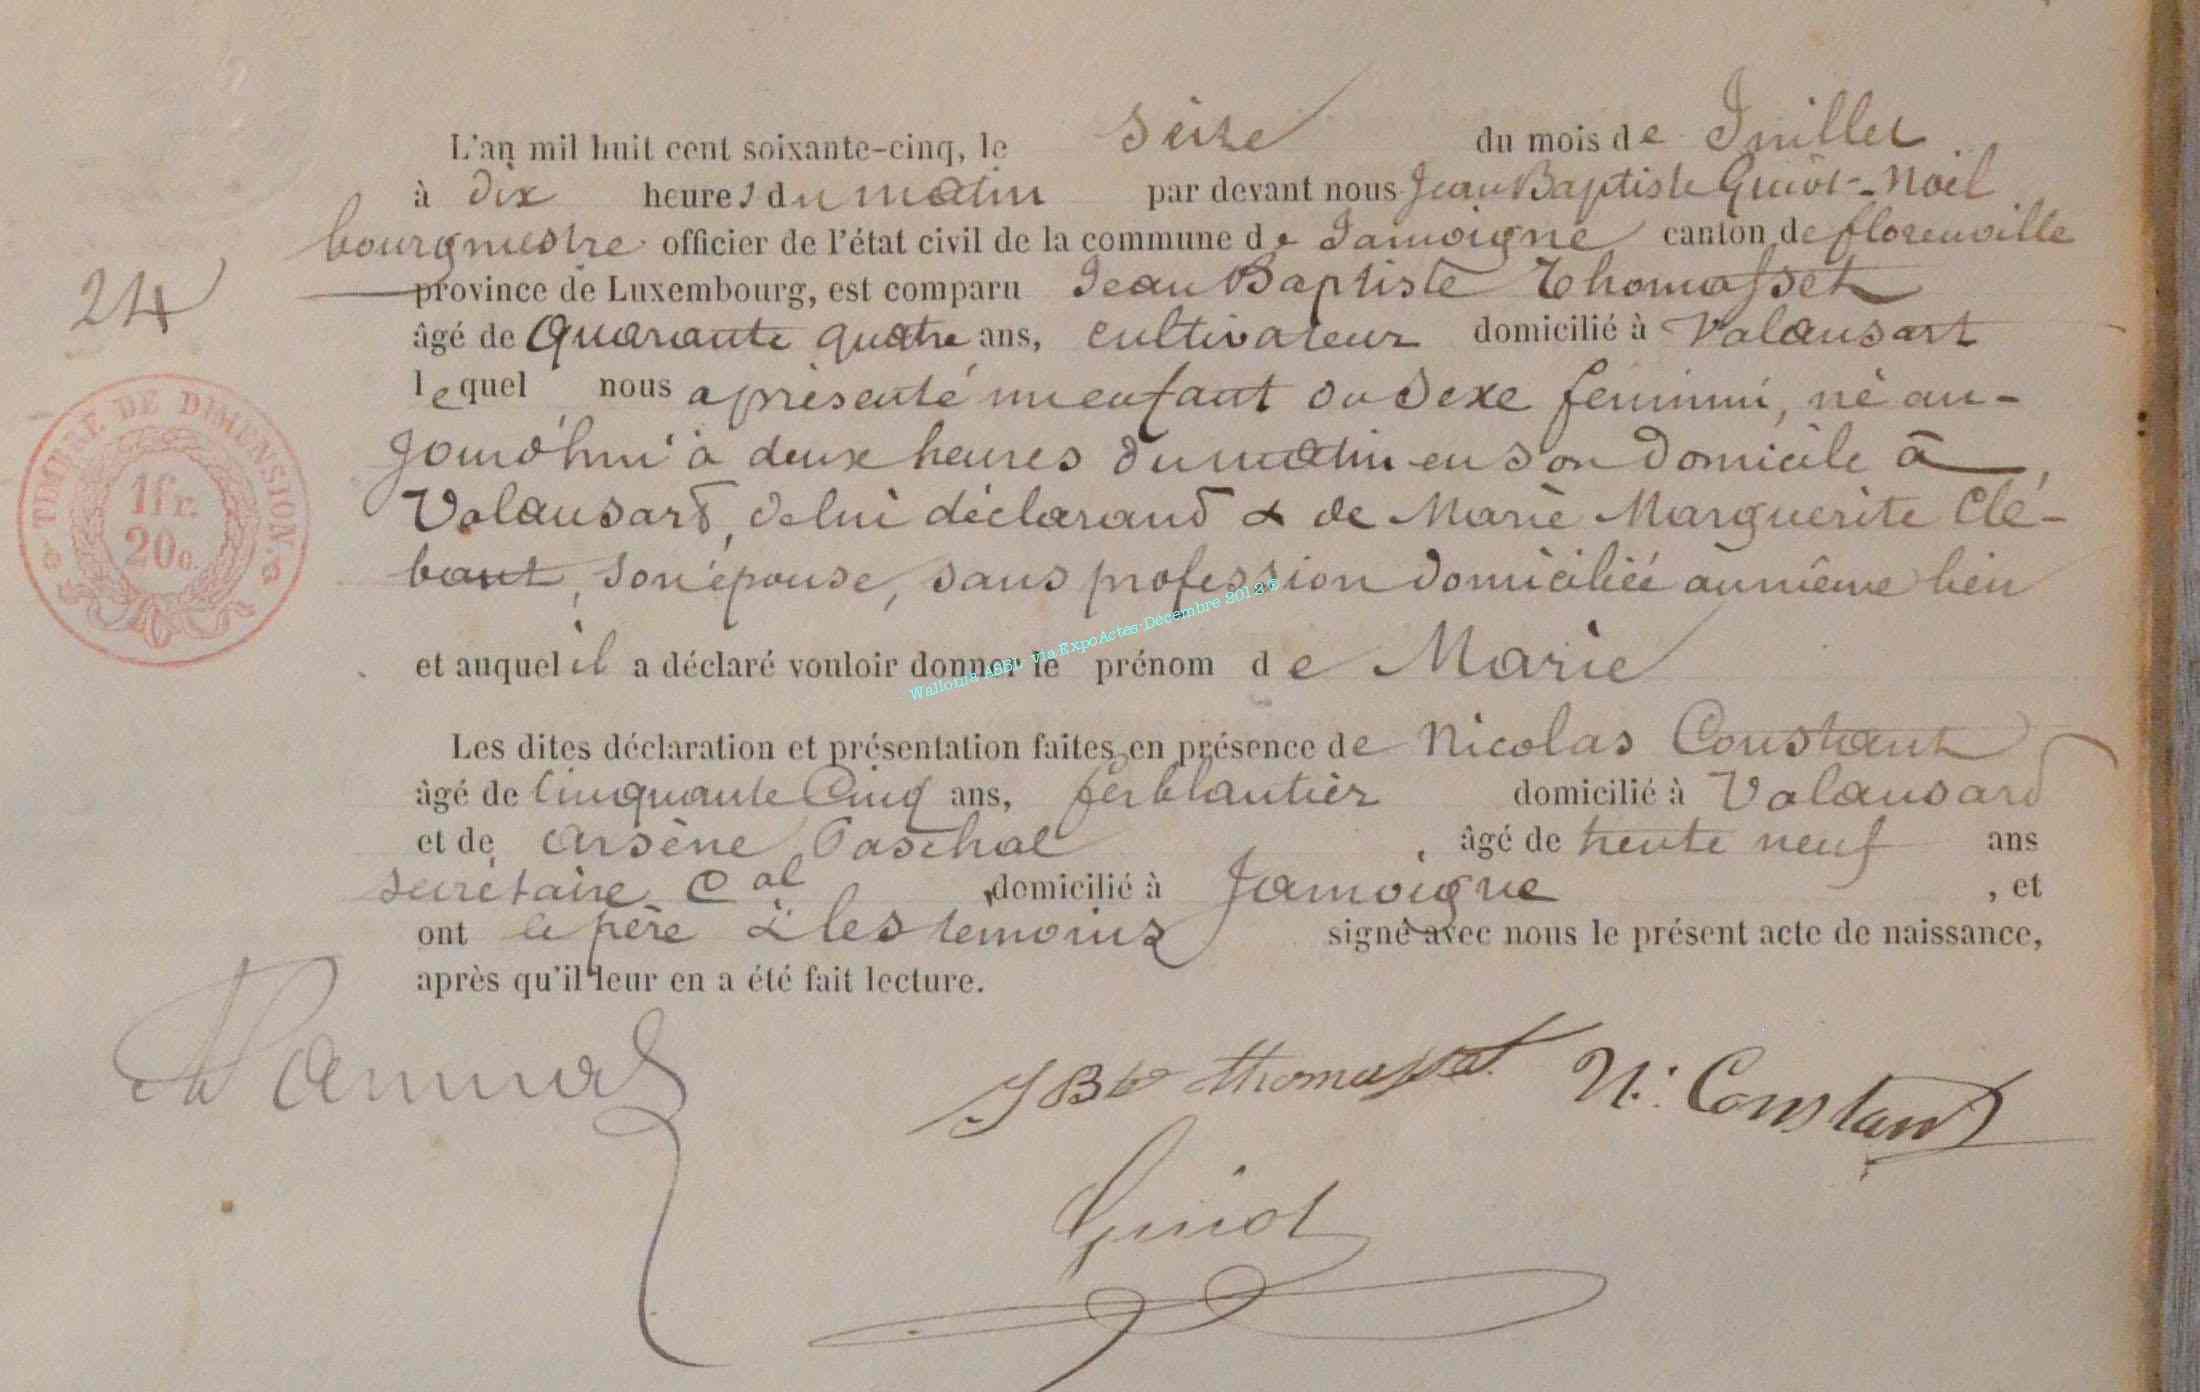 L'an mil huit cent soixante-cinq, le seize du mois de Juillet
à dix heures du matin par devant nous Jean Baptiste Guiot-Noël
bourgmestre officier de l'état civil de la commune de Jamoigne canton de florenville
24
province de Luxembourg, est comparu Jean Baptiste Thomasset
âgé de Quarante quatre ans, cultivateur domicilié à Valansart
lequel nous a présenté un enfant du sexe feminin, né au-
jourd'hui à deux heures du matin en son domicile à
TIMBRE DE DIMENSION.
1 fr.
20 c.
Valansard, de lui déclarand & de Marie Marguerite Clé-
baut, son épouse, sans profession domiciliée au même lieu
et auquel il a déclaré vouloir donner le prénom de Marie
Wallonia ASBL via ExpoActes Décembre 2012 ©
Les dites déclaration et présentation faites en présence de Nicolas Constant
âgé de Cinquante Cinq ans, ferblantier domicilié à Valansard
et de Arsène Paschal, âgé de trente neuf ans
secrétaire Cal domicilié à Jamoigne, et
ont le père & les temoins signé avec nous le présent acte de naissance,
après qu'il leur en a été fait lecture.
JBte thomasset N. Constant
Guiot